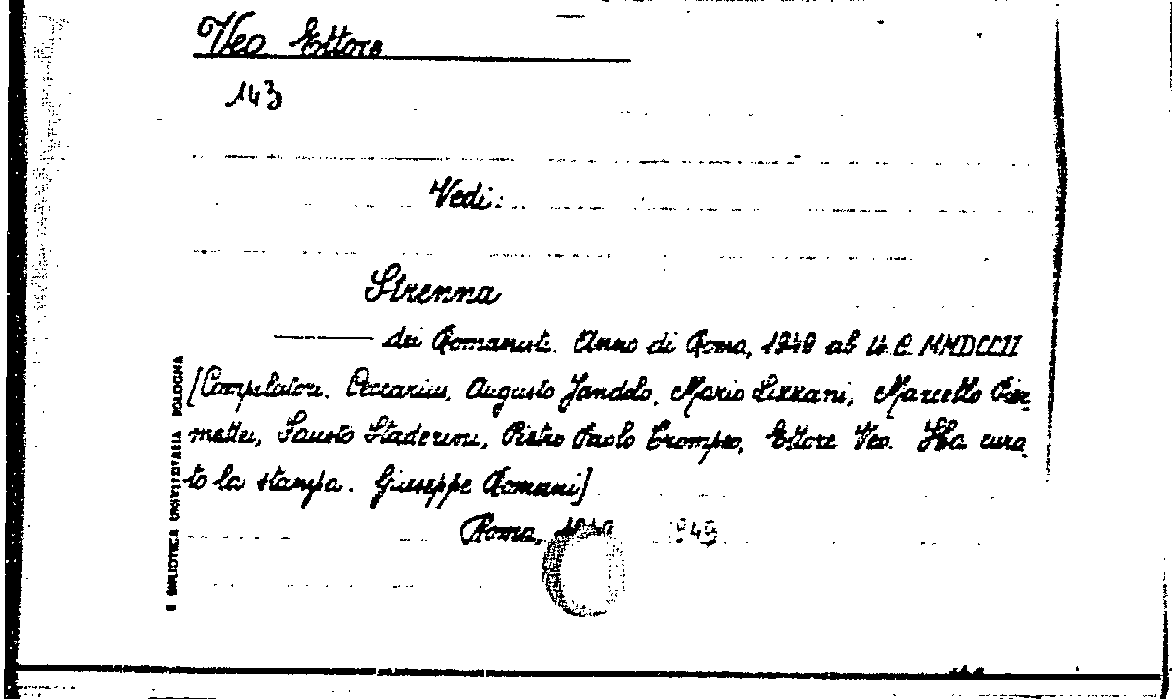 Veo Ettore
143
Vedi:
Strenna
——— dei Romanisti. Anno di Roma, 1949 ab U.C. MMDCCII
[Compilatori. Ceccarius, Augusto Jandolo, Mario Lizzani, Marcello Pier
mattei, Fausto Staderini, Pietro Paolo Trompeo, Ettore Veo. Ha cura
to la stampa. Giuseppe Romani]
Roma, 1949 1949
R BIBLIOTECA UNIVERSITARIA BOLOGNA